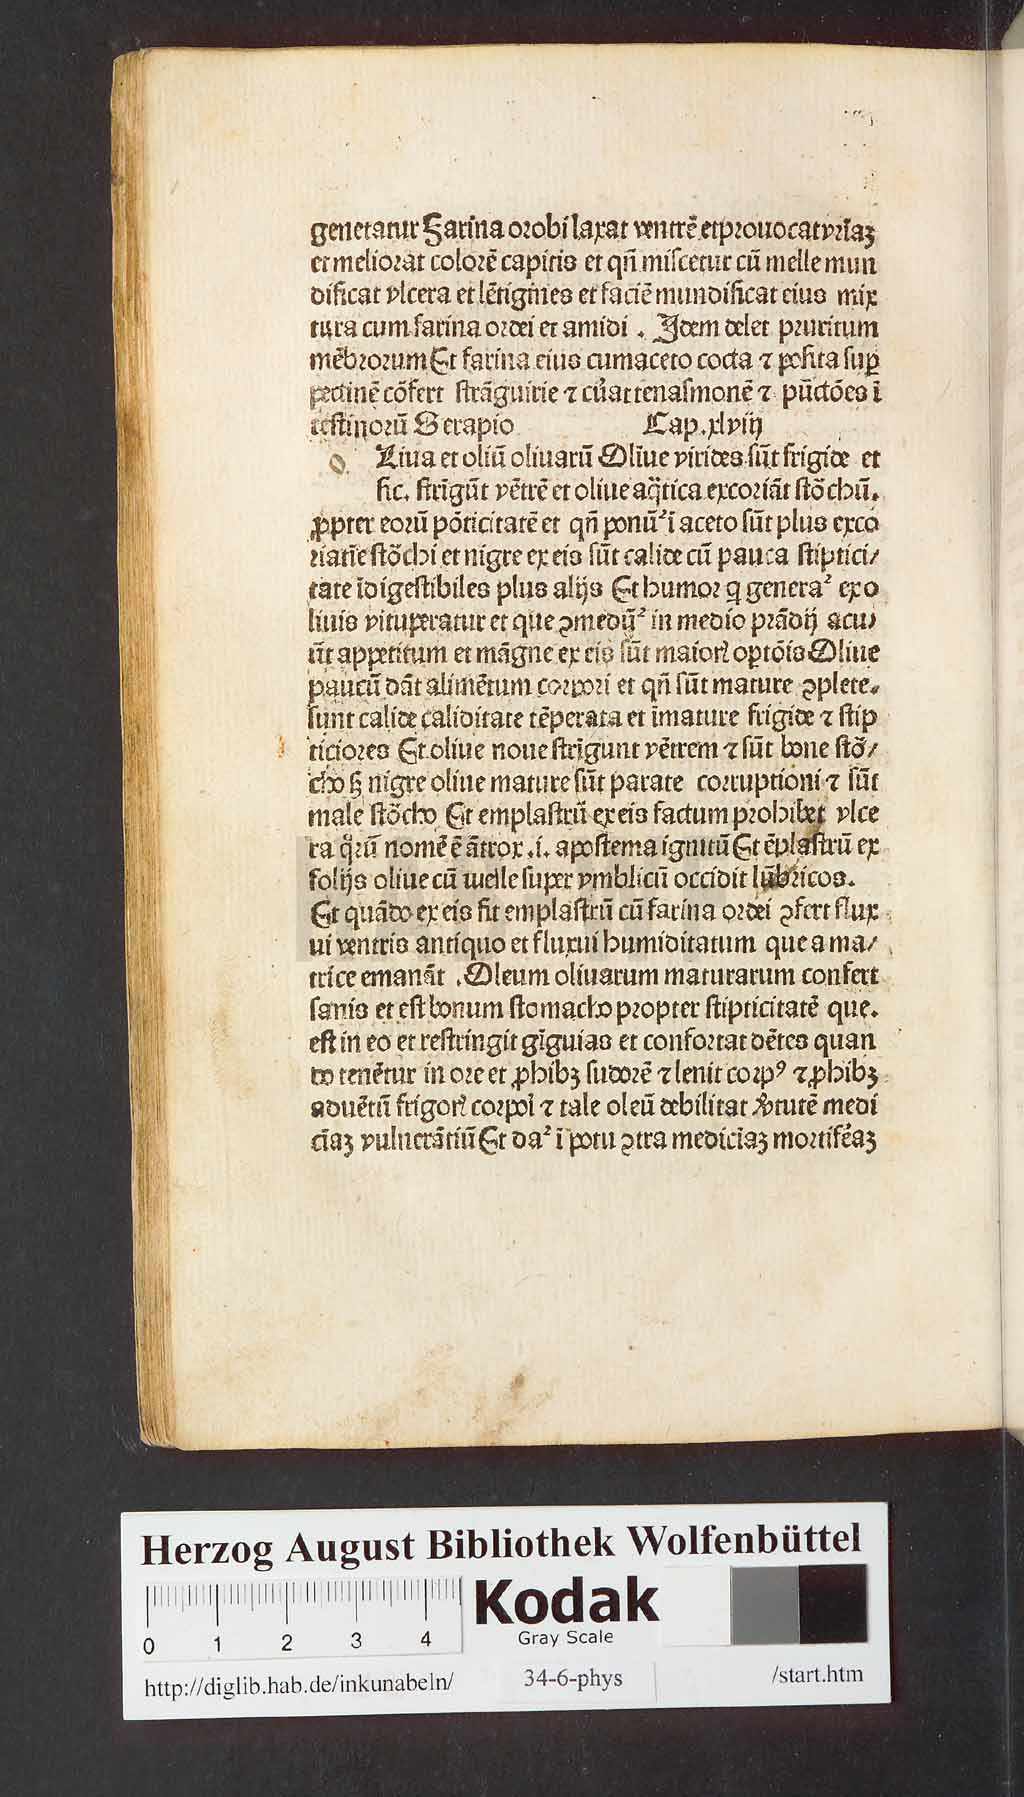 genetatur Farina orobi laxat ventrē et prouocat vrīaꝫ
et meliorat colorē capitis et qn̄ miscetur cū melle mun
dificat vlcera et lētigines et faciē mundificat eius mix
tura cum farina ordei et amidi . Idem delet pruritum
mēbrorum Et farina eius cum aceto cocta ⁊ posita suꝑ
pectinē cōfert strāguirie ⁊ cūat tenasmonē ⁊ pūctōes ī
testinorū Serapio Cap. xlviij
o Liua et oliū oliuarū Oliue virides sūt frigide et
sic. strīgūt vētrē et oliue aq̄tica excoriāt stōchū.
ꝓpter eorū pōticitatē et qn̄ ponū² ī aceto sūt plus exco
riatīe stōchi et nigre ex eis sūt calide cū pauca stiptici/
tate īdigestibiles plus alijs Et humor q genera² ex o
liuis vituperatur et que ꝯmedū² in medio prādij acu/
ūt appetitum et māgne ex eis sūt maioꝝ optōis Oliue
paucū dāt alimētum corpori et qn̄ sūt mature ꝯplete.
sunt calide caliditate tēperata et īmature frigide ⁊ stip
ticiores Et oliue noue strīgunt vētrem ⁊ sūt bone stō/
cho ẜ nigre oliue mature sūt parate corruptioni ⁊ sūt
male stōcho Et emplastrū ex eis factum prohibet vlce
ra qͦrū nomē ē ātrox .i. apostema ignitū Et ēplastrū ex
folijs oliue cū melle super vmblicū occidit lūbricos.
Et quādo ex eis fit emplastrū cū farina ordei ꝯfert flux
ui ventris antiquo et fluxui humiditatum que a ma/
trice emanāt . Oleum oliuarum maturarum confert
sanis et est bonum stomacho propter stipticitatē que.
est in eo et restringit gīguias et confortat dētes quan
do tenētur in ore et ꝓhibꝫ sudorē ⁊ lenit corpꝰ ⁊ ꝓhibꝫ
aduētū frigoꝝ corpoī ⁊ tale oleū debilitat v̄tutē medi
cīaꝫ vulnerātiū Et da² ī potu ꝯtra medicīaꝫ mortifēaꝫ
Herzog August Bibliothek Wolfenbüttel
Kodak
Gray Scale
0 1 2 3 4
http://diglib.hab.de/inkunabeln/ 34-6-phys /start.htm